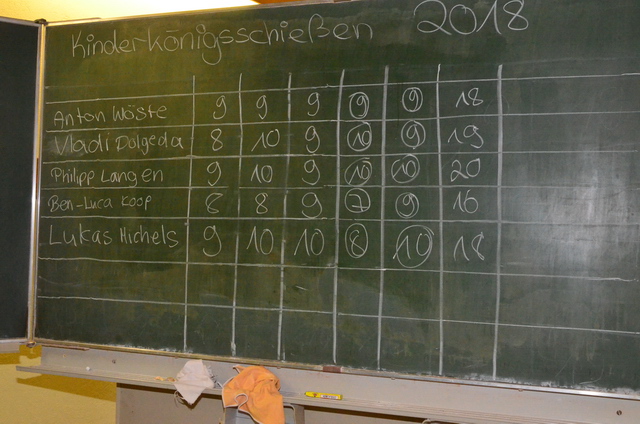 Kinderkönigsschießen 2018
Anton Wöste 9 9 9 9 9 18
Vladi Dolgeda 8 10 9 10 9 19
Philipp Langen 9 10 9 10 10 20
Ben-Luca Koop 8 8 9 7 9 16
Lukas Michels 9 10 10 8 10 18